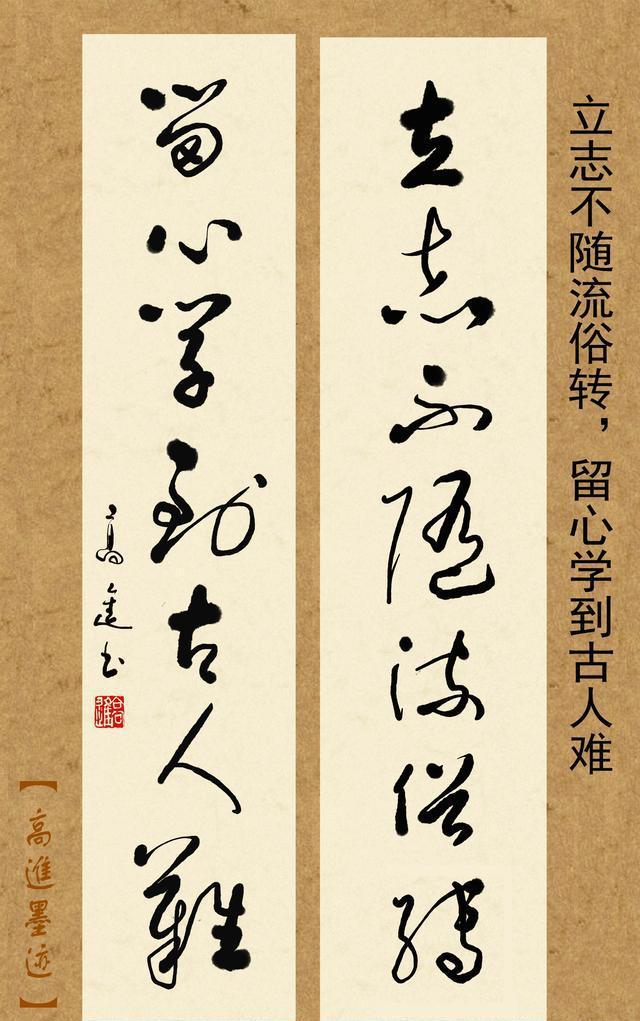 立志不随流俗转，留心学到古人难
立志不随流俗轉
留心学到古人難
高進书
高進
【高進墨迹】